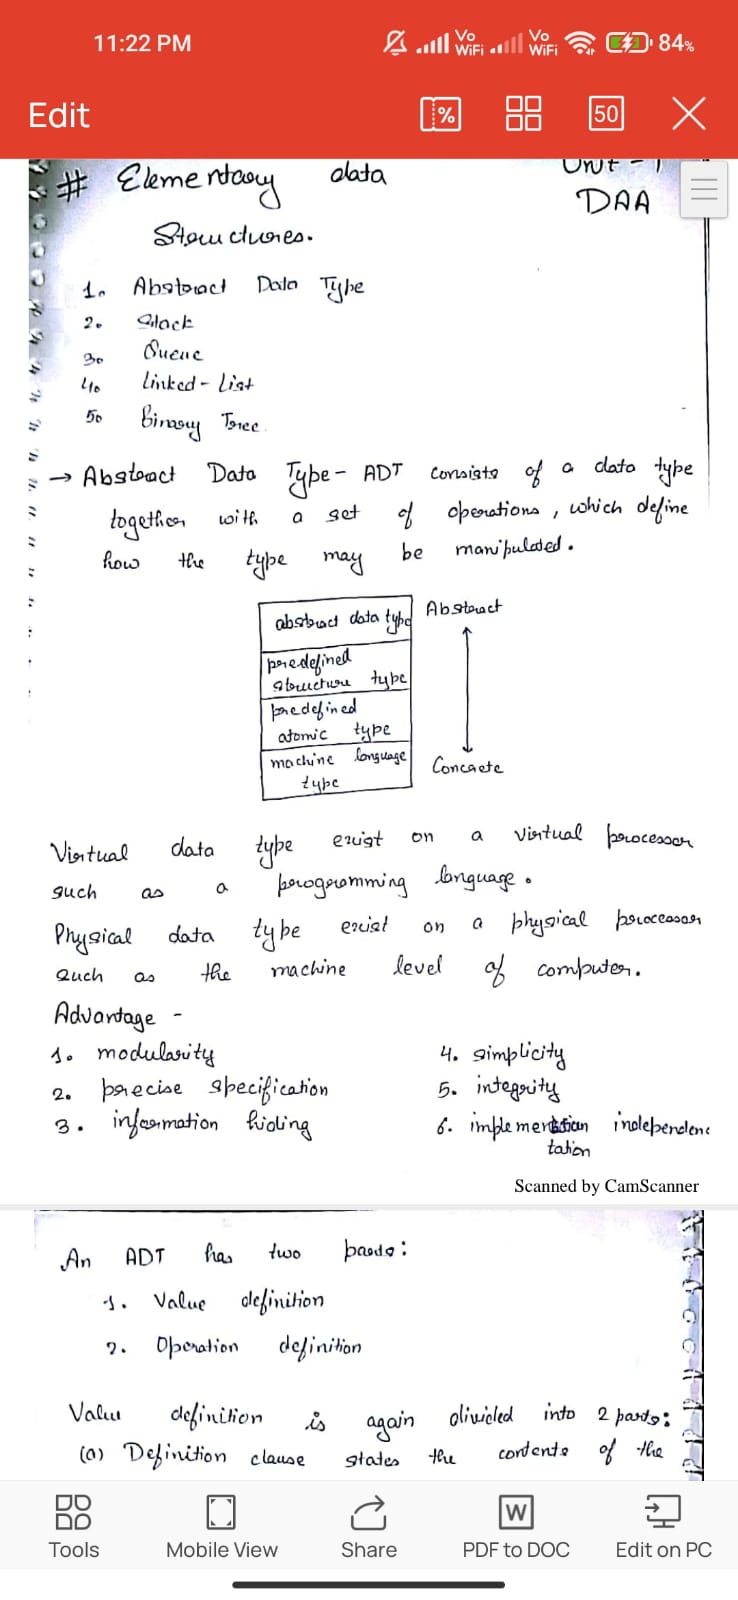 11:22 PM
Vo WiFi
Vo WiFi
84%
Edit
%
50
Unit - 1
# Elementary data
DAA
Structures.
1. Abstract Data Type
2. Stack
3. Queue
4. Linked - List
5. Binary Tree.
→ Abstract Data Type - ADT consists of a data type
together with a set of operations, which define
how the type may be manipulated.
abstract data type
Abstract
predefined
structure type
predefined
atomic type
machine language
type
Concrete
Virtual data type exist on a virtual processor
such as a programming language.
Physical data type exist on a physical processor
such as the machine level of computer.
Advantage -
1. modularity
2. precise specification
3. information hiding
4. simplicity
5. integrity
6. implementation independence
tation
Scanned by CamScanner
An ADT has two parts:
1. Value definition
2. Operation definition
Value definition is again divided into 2 parts:
(a) Definition clause states the contents of the
Tools
Mobile View
Share
W
PDF to DOC
Edit on PC